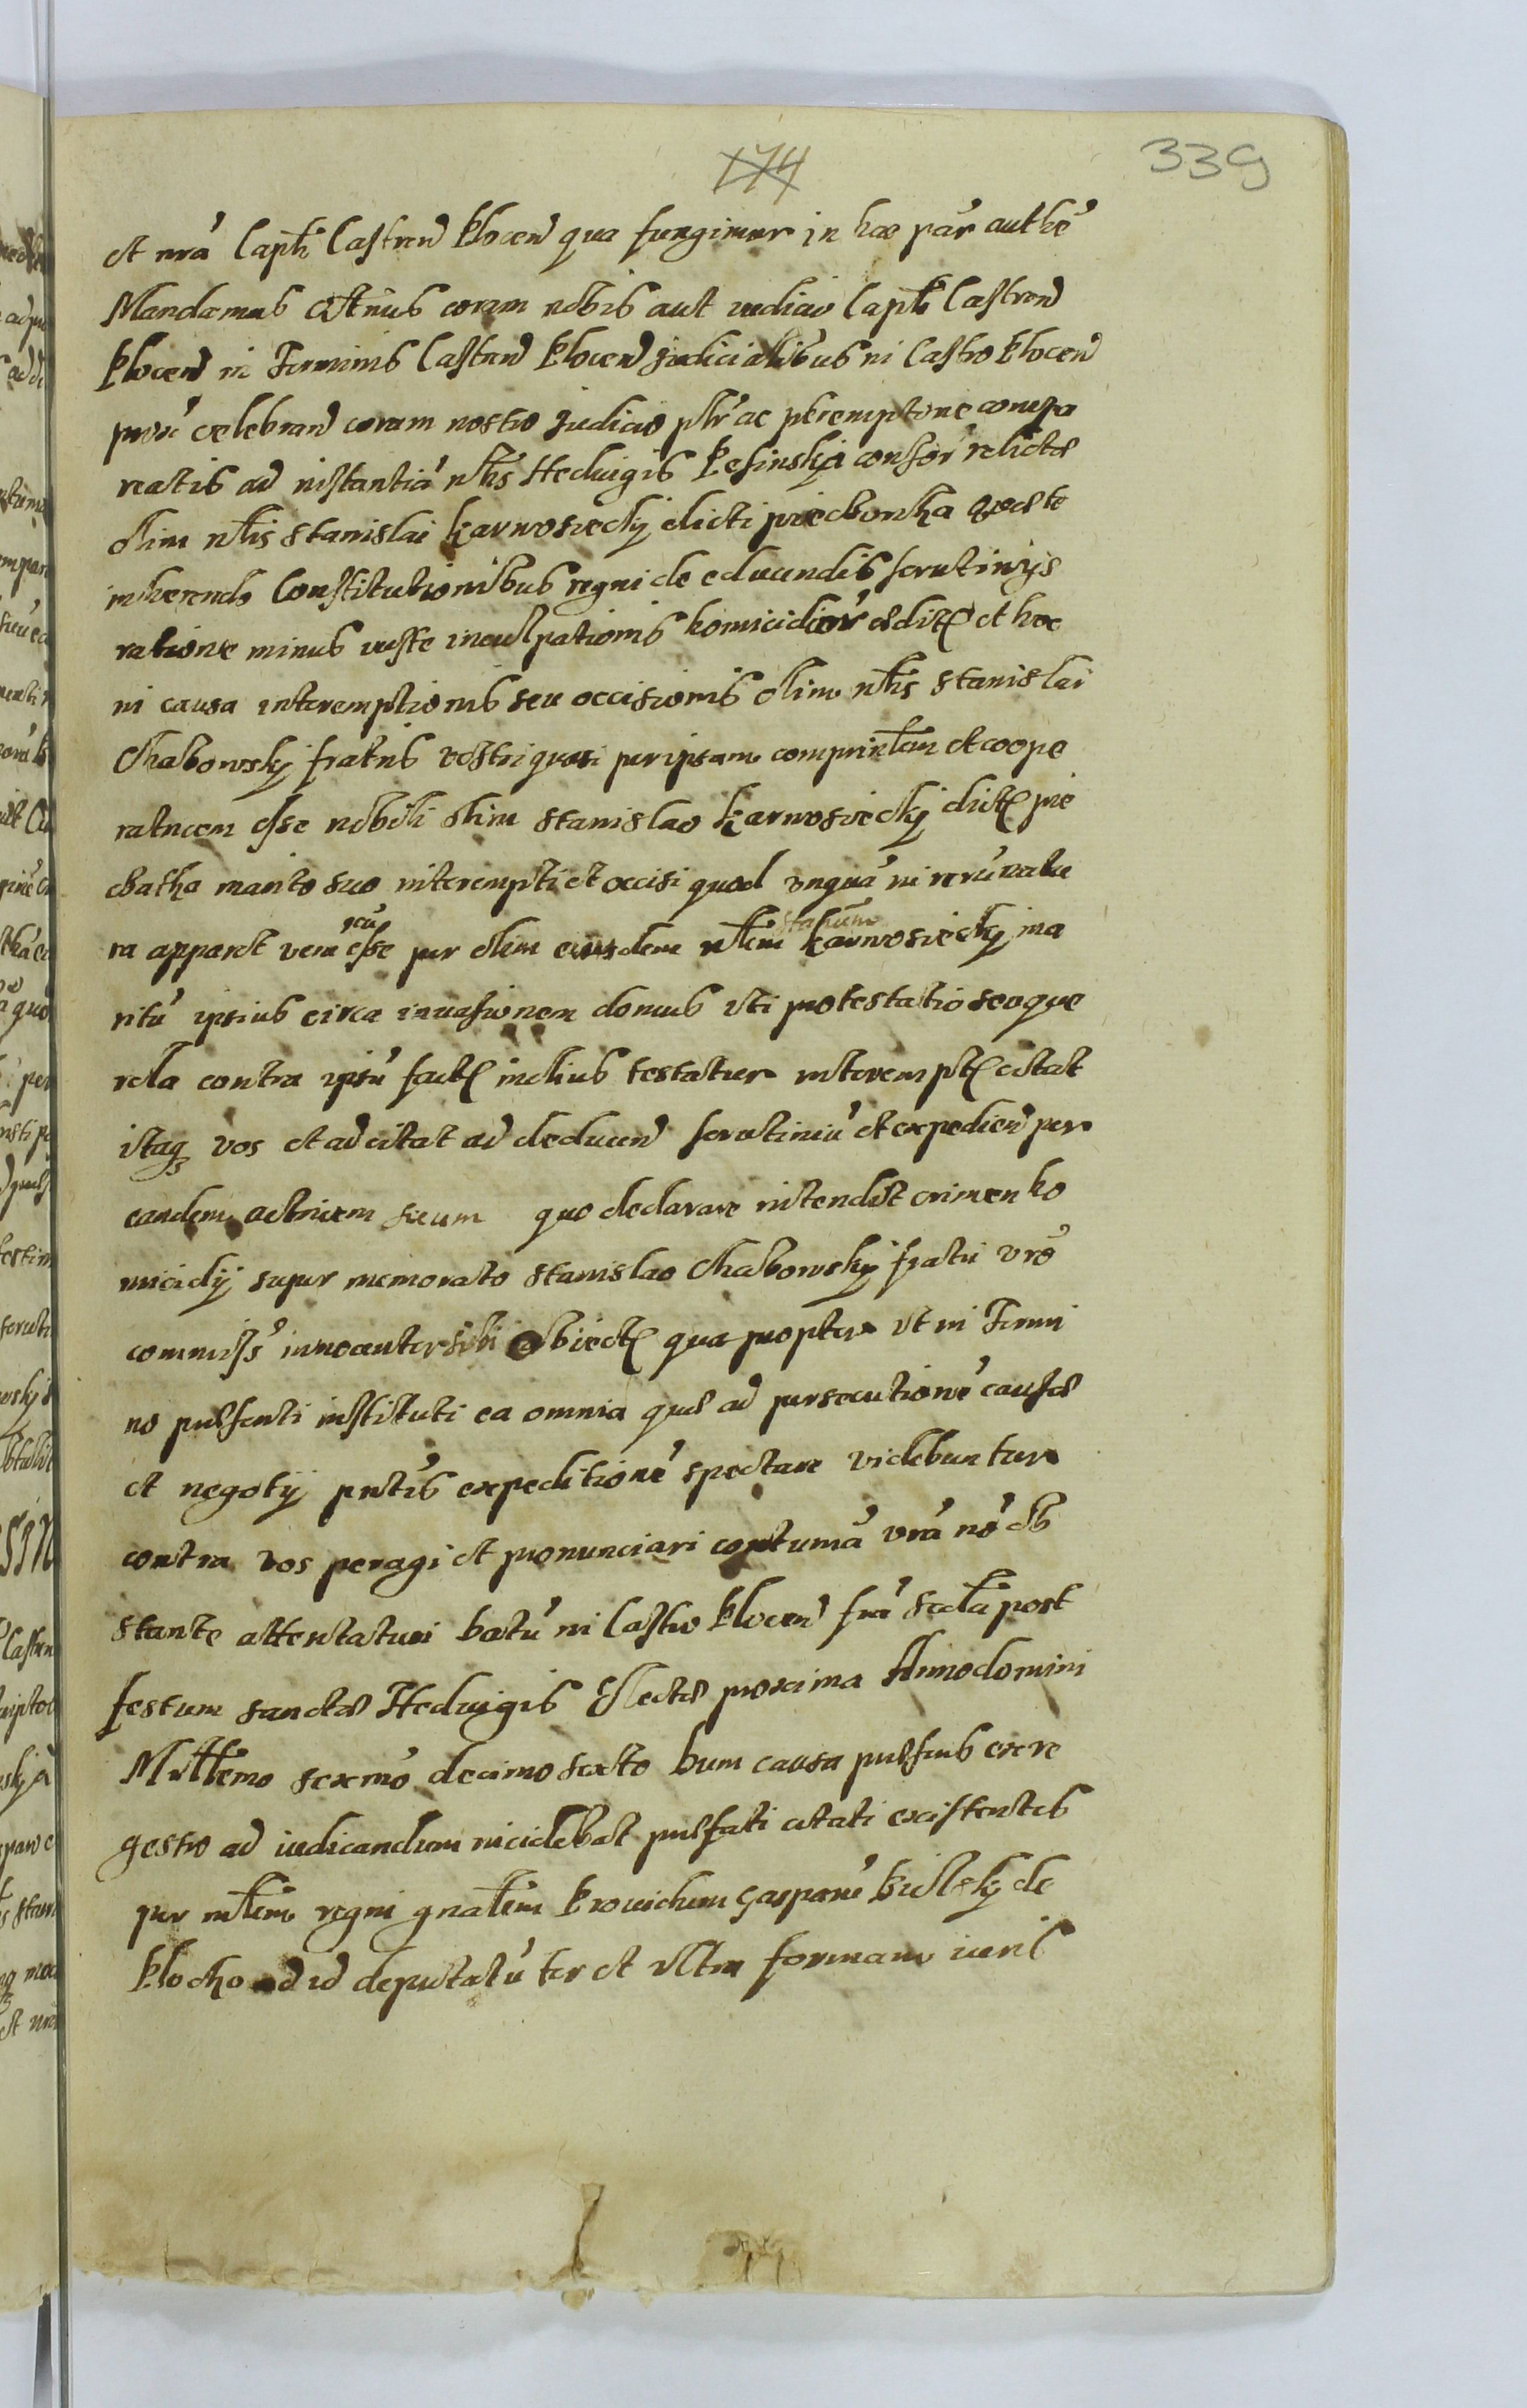 174
339
et nrã Capli Castren Plocen qua fungimur in hac par authẽ
Mandamus q̃tẽnus coram nobis aut iudicio Capli Castren
Plocen in Terminis Castren Plocen Judicialibus in Castro Plocen
prox celebran coram nostro Judicio plr̃ ac peremptorie compa
reatis ad instantiã nlis Hedvigis Kesinskja consor relictæ
olim nlis Stanislai Karwosiecky dicti piechonka
inherendo Constitutionibus regni de educendis scrutinijs
ratione minus iuste inculpationis homicidior edit et hoc
in causa interemptionis seu occisionis olim nlis Stanislai
Chabowsky fratris vestri quasi per ipsam comprinlem et coope
ratricem esse nobili olim Stanislao Karwosiecky dict pie
chatka marito suo interempti et occisi quod unquã in rerũ natu
ra apparet vem esse per olim eiusdem nlem Karwosiecky ma
ritũ ipsius circa invasionem domus uti protestatio seu que
rela contra ipsũ fact melius testatur interempt citat
itaq vos et adcitat ad deducen scrutiniũ et expedien per
eandem actricem suum quo declarare intendit crimen ho
micidij super memorato Stanislao Chabowsky fratri vrõ
commiss innocenter sibi obiect qua propter ut in Termi
no præsenti instituti ea omnia quæ ad persecutionẽ causæ
et negotij pntis expeditionẽ spectare videbuntur
contra vos peragi et pronunciari contumã vrã nõ ob
stante attentaturi Datũ in Castro Plocen frã scda post
festum sanctæ Hedvigis Electæ proxima Anno domini
Millemo sexmõ decimo sexto Dum causa præsens ex re
gestro ad iudicandum incidebat præfati citati existentes
per mlem regni gnalem Providum Gasparẽ Bielsky de
Plocko ad id deputatũ ter et ultra formam iuris